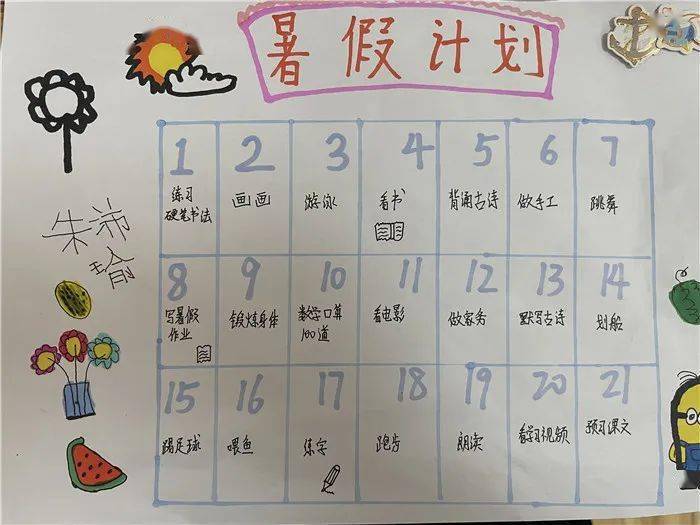 暑假计划
朱沛瑜
1 2 3 4 5 6 7
练习
硬笔书法
画画
游泳
看书
背诵古诗
做手工
跳舞
8 9 10 11 12 13 14
写暑假
作业
锻炼身体
数学口算
100道
看电影
做家务
默写古诗
划船
15 16 17 18 19 20 21
踢足球
喂鱼
练字
跑步
朗读
看学习视频
预习课文